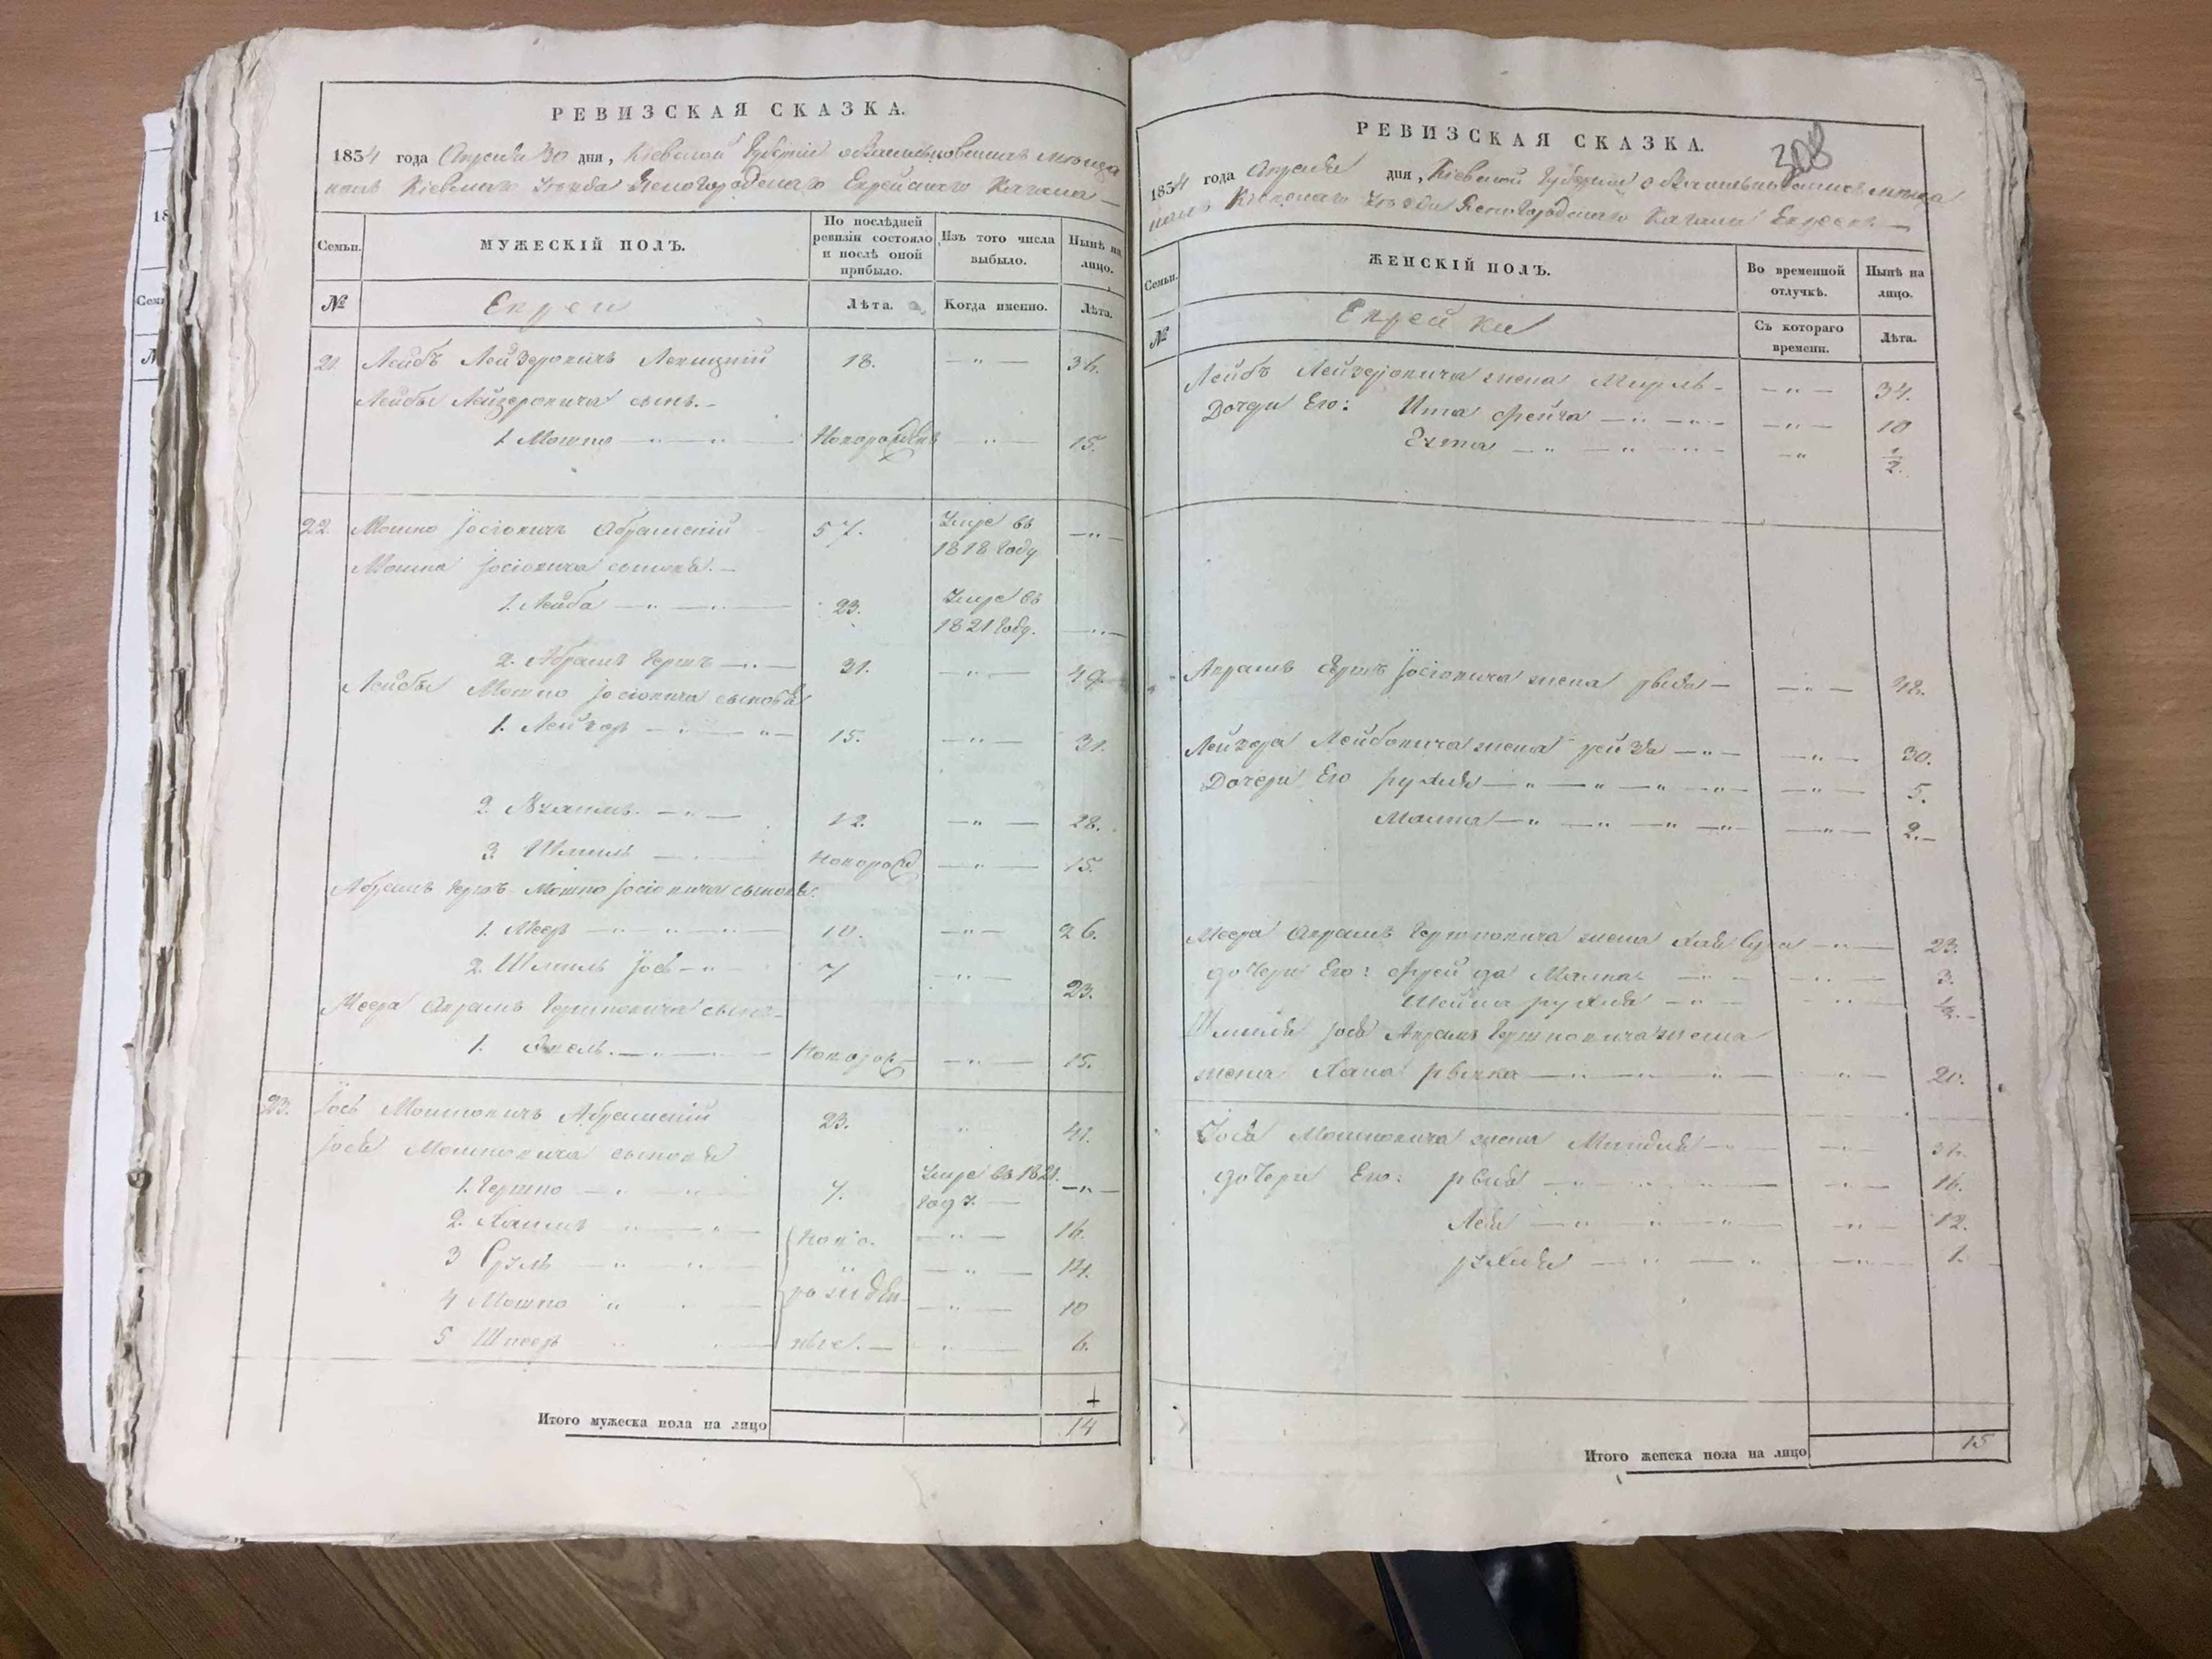 РЕВИЗСКАЯ СКАЗКА.
1834 года Апреля 30 дня, Кіевской Губерніи о
Кіевскаго Уѣзда Ясногородскаго Еврейскаго Кагала —
Семьи. МУЖЕСКІЙ ПОЛЪ. По послѣдней ревизіи состояло и послѣ оной прибыло. Изъ того числа выбыло. Нынѣ на лицо.
№ Евреи Лѣта. Когда именно. Лѣта.
21. Лейбъ Лейзеровичъ 18. — " — 36.
Лейбы Лейзеровича сынъ. —
1. Мошко — " — " — Новорожден — " — 15.
22. Мошко Іосіовичъ Абрамскій 57. Умре въ 1818 Году — " —
Мошка Іосіовича сыновья. —
1. Лейба — " — " — 23. Умре въ 1821 Году. — " —
2. Абрамъ Гершъ — " — 31. — " — 49.
Лейбы Мошко Іосіовича сыновья
1. Лейзор — " — " — 15. — " — 31.
2. — " — 12. — " — 28.
3. Шмиль — Новорожд — " — 15.
Абрамъ Гершъ Мошко Іосіовича сыновья:
1. Меер — " — " — " — 10. — " — 26.
2. Шмиль Іось — " — 7 — " — 23.
Меера Аврамъ Гершковича сынъ —
1. — " — Новорож — " — 15.
23. Іось Мошковичъ Абрамскій 23. " 41.
Іося Мошковича сыновья
1. Гершко — " — " 7. Умре въ 1821. году. — — " —
2. Хаимъ — " — " — Ново- — " — 16.
3 Сруль — " — " рожден- — " — 14.
4 Мошко " " — " — 10
5 Шнеер " " ные. — " — 6.
Итого мужеска пола на лицо 14
РЕВИЗСКАЯ СКАЗКА.
308
1834 года Апреля дня, Кіевской Губерніи о
Кіевскаго Уѣзда Ясногородскаго Кагала Евреевъ. —
Семьи. ЖЕНСКІЙ ПОЛЪ. Во временной отлучкѣ. Нынѣ на лицо.
№ Еврейки Съ котораго времени. Лѣта.
Лейбъ Лейзеровича жена — — " — 34.
Дочери Его: Ита Фейга — " — " — — " — 10
— " — " — " — — " 1/2.
Аврамъ Гершъ Іосіовича жена Рыся — — " — 48.
Лейзора Лейбовича жена Рейза — " — — " — 30.
Дочери Его Рухля — " — " — " — " — — " — 5.
Малка — " — " — " — " — — " — 2. —
Меера Аврамъ Гершковича жена Хая Сура — " — 23.
дочери Его: Фрейда Малка — " — — " — 3.
Шейна Рухля — " — — " — 1/2. —
Шмиля Іося Аврамъ Гершковича жена
жена Хана Рывка — " — " — " — " — 20.
Іося Мошковича жена Миндля — " — — " — 37.
дочери Его: Рыся — " — " — " — — " — 16.
Лея — " — " — " — — " — 12.
Рухля — " — " — " — " — 1.
Итого женска пола на лицо 15